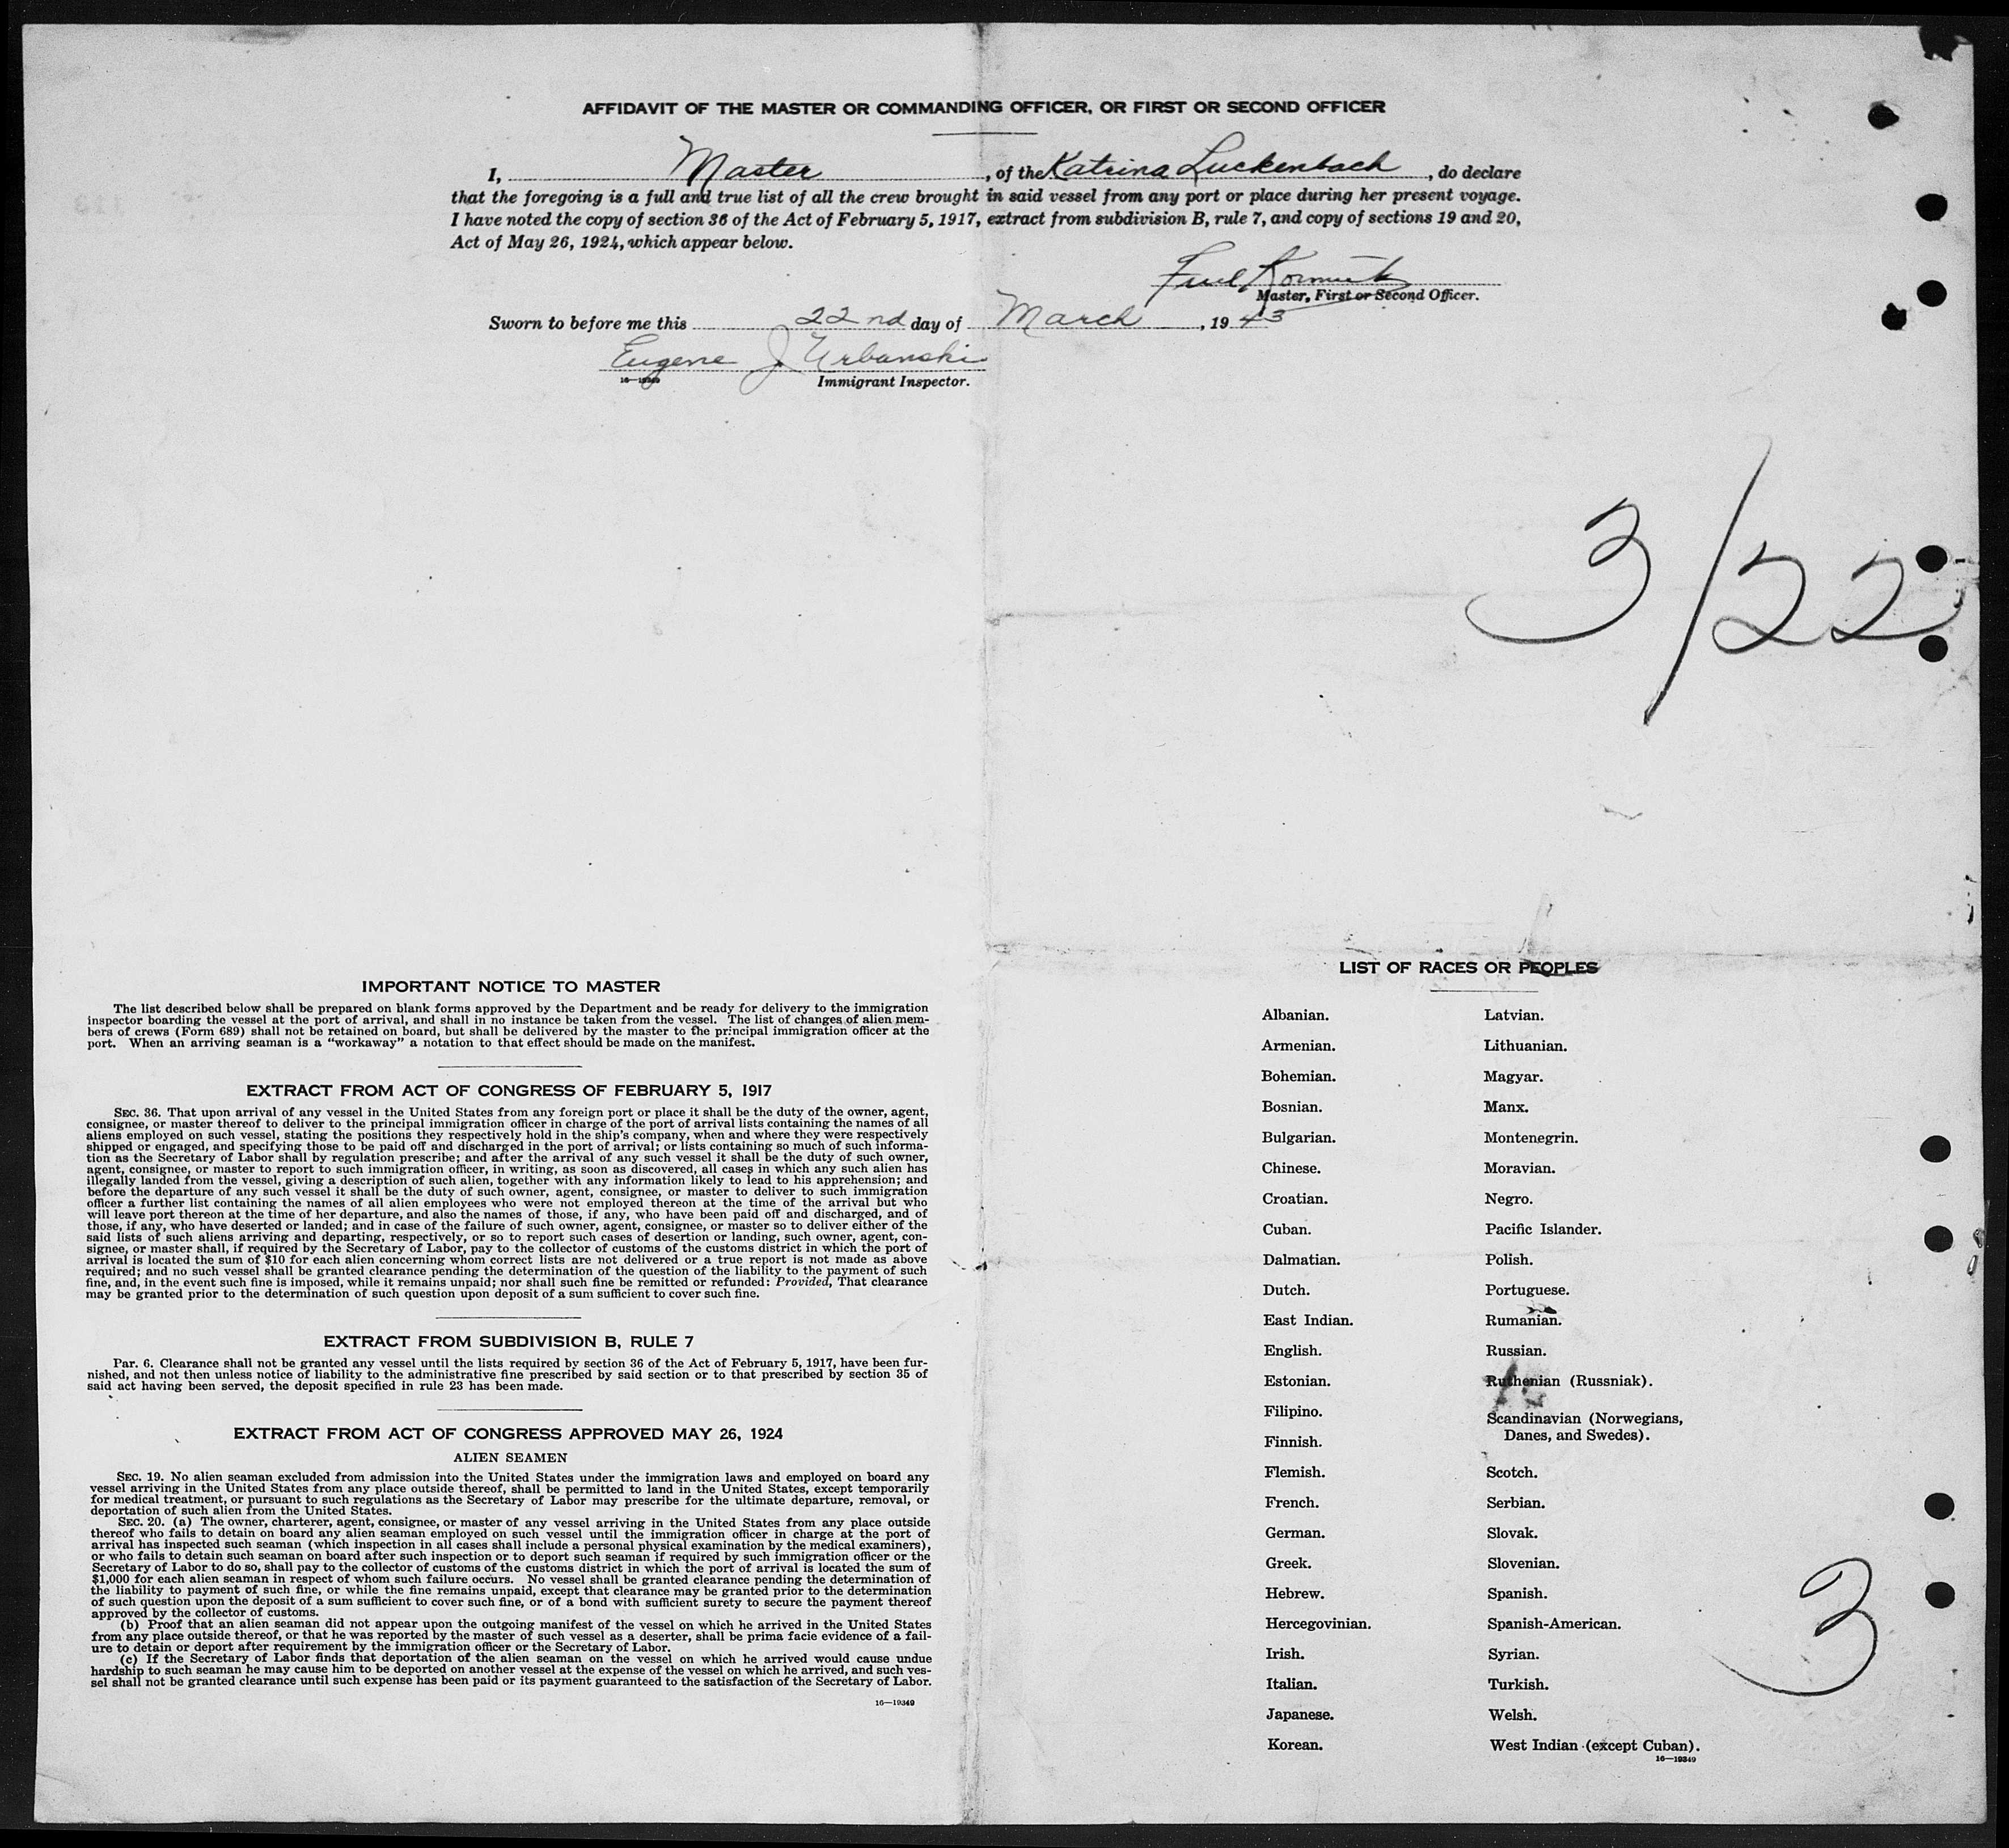 AFFIDAVIT OF THE MASTER OR COMMANDING OFFICER, OR FIRST OR SECOND OFFICER
I, Master, of the Katrina Luckenbach, do declare
that the foregoing is a full and true list of all the crew brought in said vessel from any port or place during her present voyage.
I have noted the copy of section 36 of the Act of February 5, 1917, extract from subdivision B, rule 7, and copy of sections 19 and 20,
Act of May 26, 1924, which appear below.
Master, First or Second Officer.
Sworn to before me this 22nd day of March, 1943
Eugene J Urbanski
16—19349 Immigrant Inspector.
3/22
IMPORTANT NOTICE TO MASTER
The list described below shall be prepared on blank forms approved by the Department and be ready for delivery to the immigration
inspector boarding the vessel at the port of arrival, and shall in no instance be taken from the vessel. The list of changes of alien mem-
bers of crews (Form 689) shall not be retained on board, but shall be delivered by the master to the principal immigration officer at the
port. When an arriving seaman is a "workaway" a notation to that effect should be made on the manifest.
EXTRACT FROM ACT OF CONGRESS OF FEBRUARY 5, 1917
SEC. 36. That upon arrival of any vessel in the United States from any foreign port or place it shall be the duty of the owner, agent,
consignee, or master thereof to deliver to the principal immigration officer in charge of the port of arrival lists containing the names of all
aliens employed on such vessel, stating the positions they respectively hold in the ship's company, when and where they were respectively
shipped or engaged, and specifying those to be paid off and discharged in the port of arrival; or lists containing so much of such informa-
tion as the Secretary of Labor shall by regulation prescribe; and after the arrival of any such vessel it shall be the duty of such owner,
agent, consignee, or master to report to such immigration officer, in writing, as soon as discovered, all cases in which any such alien has
illegally landed from the vessel, giving a description of such alien, together with any information likely to lead to his apprehension; and
before the departure of any such vessel it shall be the duty of such owner, agent, consignee, or master to deliver to such immigration
officer a further list containing the names of all alien employees who were not employed thereon at the time of the arrival but who
will leave port thereon at the time of her departure, and also the names of those, if any, who have been paid off and discharged, and of
those, if any, who have deserted or landed; and in case of the failure of such owner, agent, consignee, or master so to deliver either of the
said lists of such aliens arriving and departing, respectively, or so to report such cases of desertion or landing, such owner, agent, con-
signee, or master shall, if required by the Secretary of Labor, pay to the collector of customs of the customs district in which the port of
arrival is located the sum of $10 for each alien concerning whom correct lists are not delivered or a true report is not made as above
required; and no such vessel shall be granted clearance pending the determination of the question of the liability to the payment of such
fine, and, in the event such fine is imposed, while it remains unpaid; nor shall such fine be remitted or refunded: Provided, That clearance
may be granted prior to the determination of such question upon deposit of a sum sufficient to cover such fine.
EXTRACT FROM SUBDIVISION B, RULE 7
Par. 6. Clearance shall not be granted any vessel until the lists required by section 36 of the Act of February 5, 1917, have been fur-
nished, and not then unless notice of liability to the administrative fine prescribed by said section or to that prescribed by section 35 of
said act having been served, the deposit specified in rule 23 has been made.
EXTRACT FROM ACT OF CONGRESS APPROVED MAY 26, 1924
ALIEN SEAMEN
SEC. 19. No alien seaman excluded from admission into the United States under the immigration laws and employed on board any
vessel arriving in the United States from any place outside thereof, shall be permitted to land in the United States, except temporarily
for medical treatment, or pursuant to such regulations as the Secretary of Labor may prescribe for the ultimate departure, removal, or
deportation of such alien from the United States.
SEC. 20. (a) The owner, charterer, agent, consignee, or master of any vessel arriving in the United States from any place outside
thereof who fails to detain on board any alien seaman employed on such vessel until the immigration officer in charge at the port of
arrival has inspected such seaman (which inspection in all cases shall include a personal physical examination by the medical examiners),
or who fails to detain such seaman on board after such inspection or to deport such seaman if required by such immigration officer or the
Secretary of Labor to do so, shall pay to the collector of customs of the customs district in which the port of arrival is located the sum of
$1,000 for each alien seaman in respect of whom such failure occurs. No vessel shall be granted clearance pending the determination of
the liability to payment of such fine, or while the fine remains unpaid, except that clearance may be granted prior to the determination
of such question upon the deposit of a sum sufficient to cover such fine, or of a bond with sufficient surety to secure the payment thereof
approved by the collector of customs.
(b) Proof that an alien seaman did not appear upon the outgoing manifest of the vessel on which he arrived in the United States
from any place outside thereof, or that he was reported by the master of such vessel as a deserter, shall be prima facie evidence of a fail-
ure to detain or deport after requirement by the immigration officer or the Secretary of Labor.
(c) If the Secretary of Labor finds that deportation of the alien seaman on the vessel on which he arrived would cause undue
hardship to such seaman he may cause him to be deported on another vessel at the expense of the vessel on which he arrived, and such ves-
sel shall not be granted clearance until such expense has been paid or its payment guaranteed to the satisfaction of the Secretary of Labor.
16—19349
LIST OF RACES OR PEOPLES
Albanian.
Armenian.
Bohemian.
Bosnian.
Bulgarian.
Chinese.
Croatian.
Cuban.
Dalmatian.
Dutch.
East Indian.
English.
Estonian.
Filipino.
Finnish.
Flemish.
French.
German.
Greek.
Hebrew.
Hercegovinian.
Irish.
Italian.
Japanese.
Korean.
Latvian.
Lithuanian.
Magyar.
Manx.
Montenegrin.
Moravian.
Negro.
Pacific Islander.
Polish.
Portuguese.
Rumanian.
Russian.
Ruthenian (Russniak).
Scandinavian (Norwegians,
Danes, and Swedes).
Scotch.
Serbian.
Slovak.
Slovenian.
Spanish.
Spanish-American.
Syrian.
Turkish.
Welsh.
West Indian (except Cuban).
16—19349
3